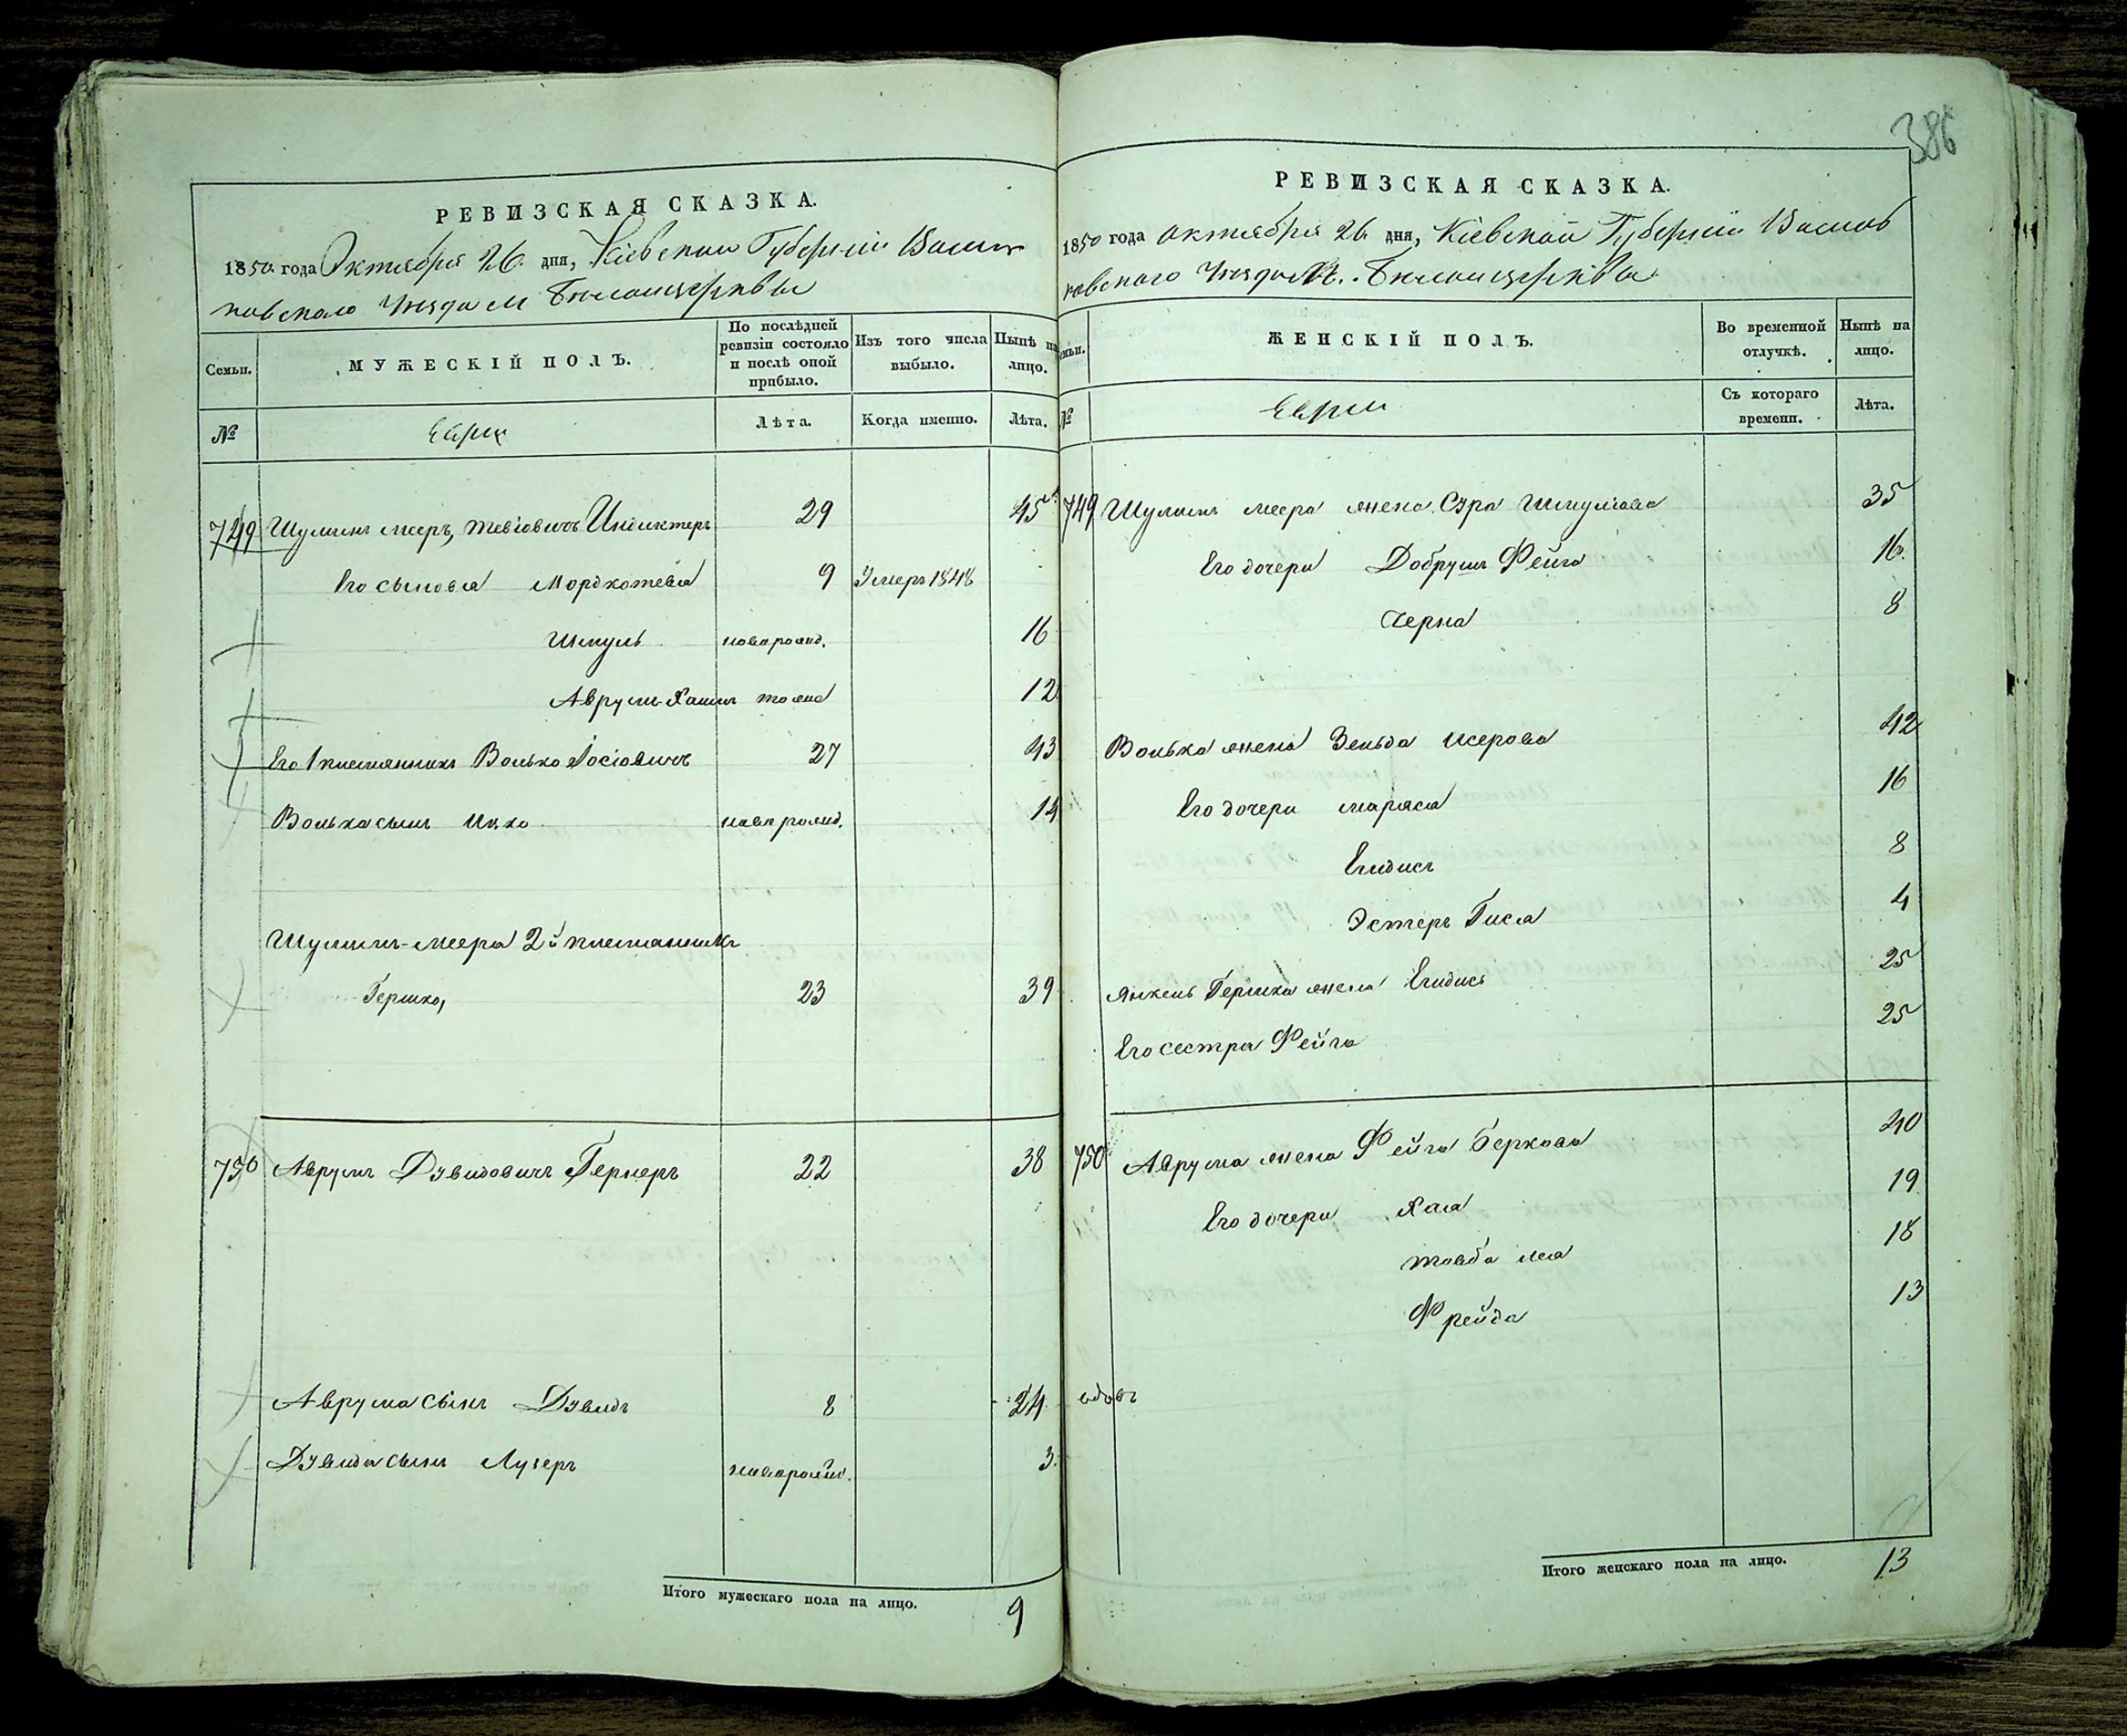 386
РЕВИЗСКАЯ СКАЗКА.
1850 года Октября 26 дня, Кіевской Губерніи Василь
ковскаго Уезда М Белойцеркви
Семьи.
МУЖЕСКІЙ ПОЛЪ.
По послѣдней ревизіи состояло и послѣ оной прибыло.
Изъ того числа выбыло.
Нынѣ на лицо.
№
Евреи
Лѣта.
Когда именно.
Лѣта.
749 Шулимъ Мееръ, Тевіовичъ 29 45
Его сыновья Мордкотевья 9 Умеръ 1848
Шмуль новорожд. 16
Аврум-Хаимъ тоже 12
Его 1 племянникъ Волько Іосіовичъ 27 43
Волька сынъ Ицко новорожд. 14
Шулимъ-Меера 2й племянникъ
Гершко, 23 39
750 Аврумъ Дувидовичъ Гернеръ 22 38
Аврума сынъ Дувидъ 8 24 вдовъ
Дувида сынъ Лузеръ новорожд. 3
Итого мужескаго пола на лицо. 9
РЕВИЗСКАЯ СКАЗКА.
1850 года Октября 26 дня, Кіевской Губерніи Василь
ковскаго Уезда М. Белойцеркви
Семьи.
ЖЕНСКІЙ ПОЛЪ.
Во временной отлучкѣ.
Нынѣ на лицо.
№
Евреи
Съ котораго времени.
Лѣта.
749 Шулимъ Меера жена Сура Шмулова 35
Его дочери Добрушъ Фейга 16
Черна 8
Волька жена Зельда Исерова 42
Его дочери Маряся 16
Ентись 8
Эстеръ Гися 4
Янкель Гершка жена Ентись 25
Его сестра Фейга 25
750 Аврума жена Фейга Беркова 40
Его дочери Хая 19
Товба Лея 18
Фрейда 13
Итого женскаго пола на лицо. 13